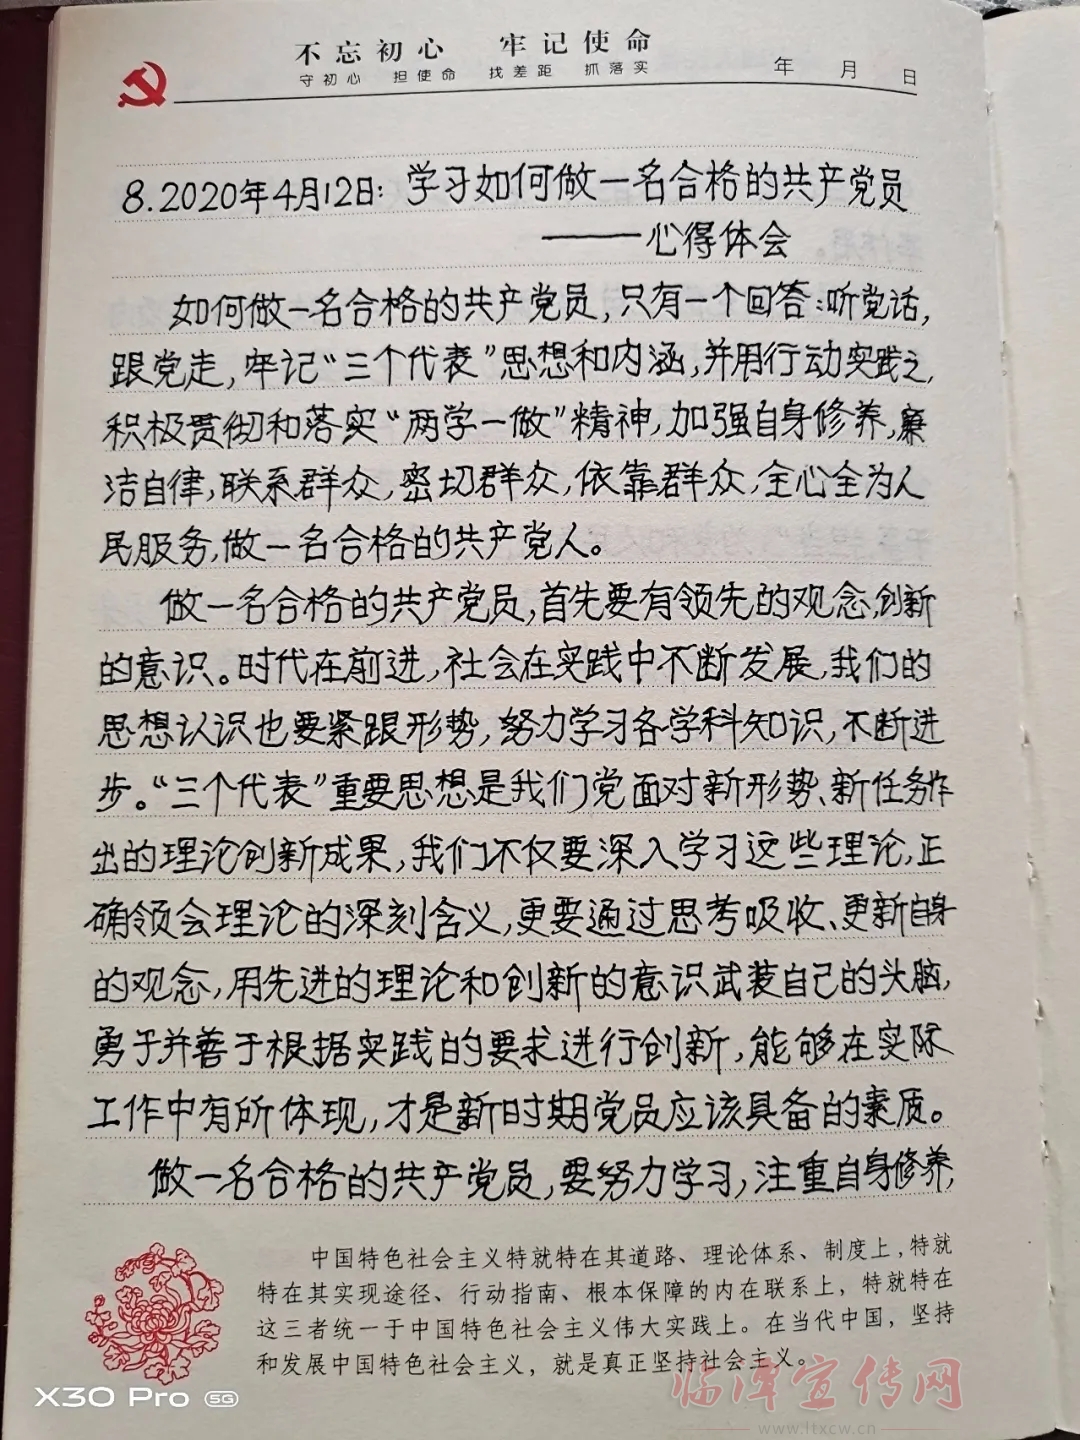 不忘初心 牢记使命
守初心 担使命 找差距 抓落实
年 月 日
8.2020年4月12日：学习如何做一名合格的共产党员
——心得体会
如何做一名合格的共产党员，只有一个回答：听党话，
跟党走，牢记“三个代表”思想和内涵，并用行动实践之，
积极贯彻和落实“两学一做”精神，加强自身修养，廉
洁自律，联系群众，密切群众，依靠群众，全心全为人
民服务，做一名合格的共产党人。
做一名合格的共产党员，首先要有领先的观念，创新
的意识。时代在前进，社会在实践中不断发展，我们的
思想认识也要紧跟形势，努力学习各学科知识，不断进
步。“三个代表”重要思想是我们党面对新形势、新任务作
出的理论创新成果，我们不仅要深入学习这些理论，正
确领会理论的深刻含义，更要通过思考吸收、更新自身
的观念，用先进的理论和创新的意识武装自己的头脑，
勇于并善于根据实践的要求进行创新，能够在实际
工作中有所体现，才是新时期党员应该具备的素质。
做一名合格的共产党员，要努力学习，注重自身修养，
中国特色社会主义特就特在其道路、理论体系、制度上，特就
特在其实现途径、行动指南、根本保障的内在联系上，特就特在
这三者统一于中国特色社会主义伟大实践上。在当代中国，坚持
和发展中国特色社会主义，就是真正坚持社会主义。
X30 Pro 5G
临泽宣传网
www.ltxcw.cn